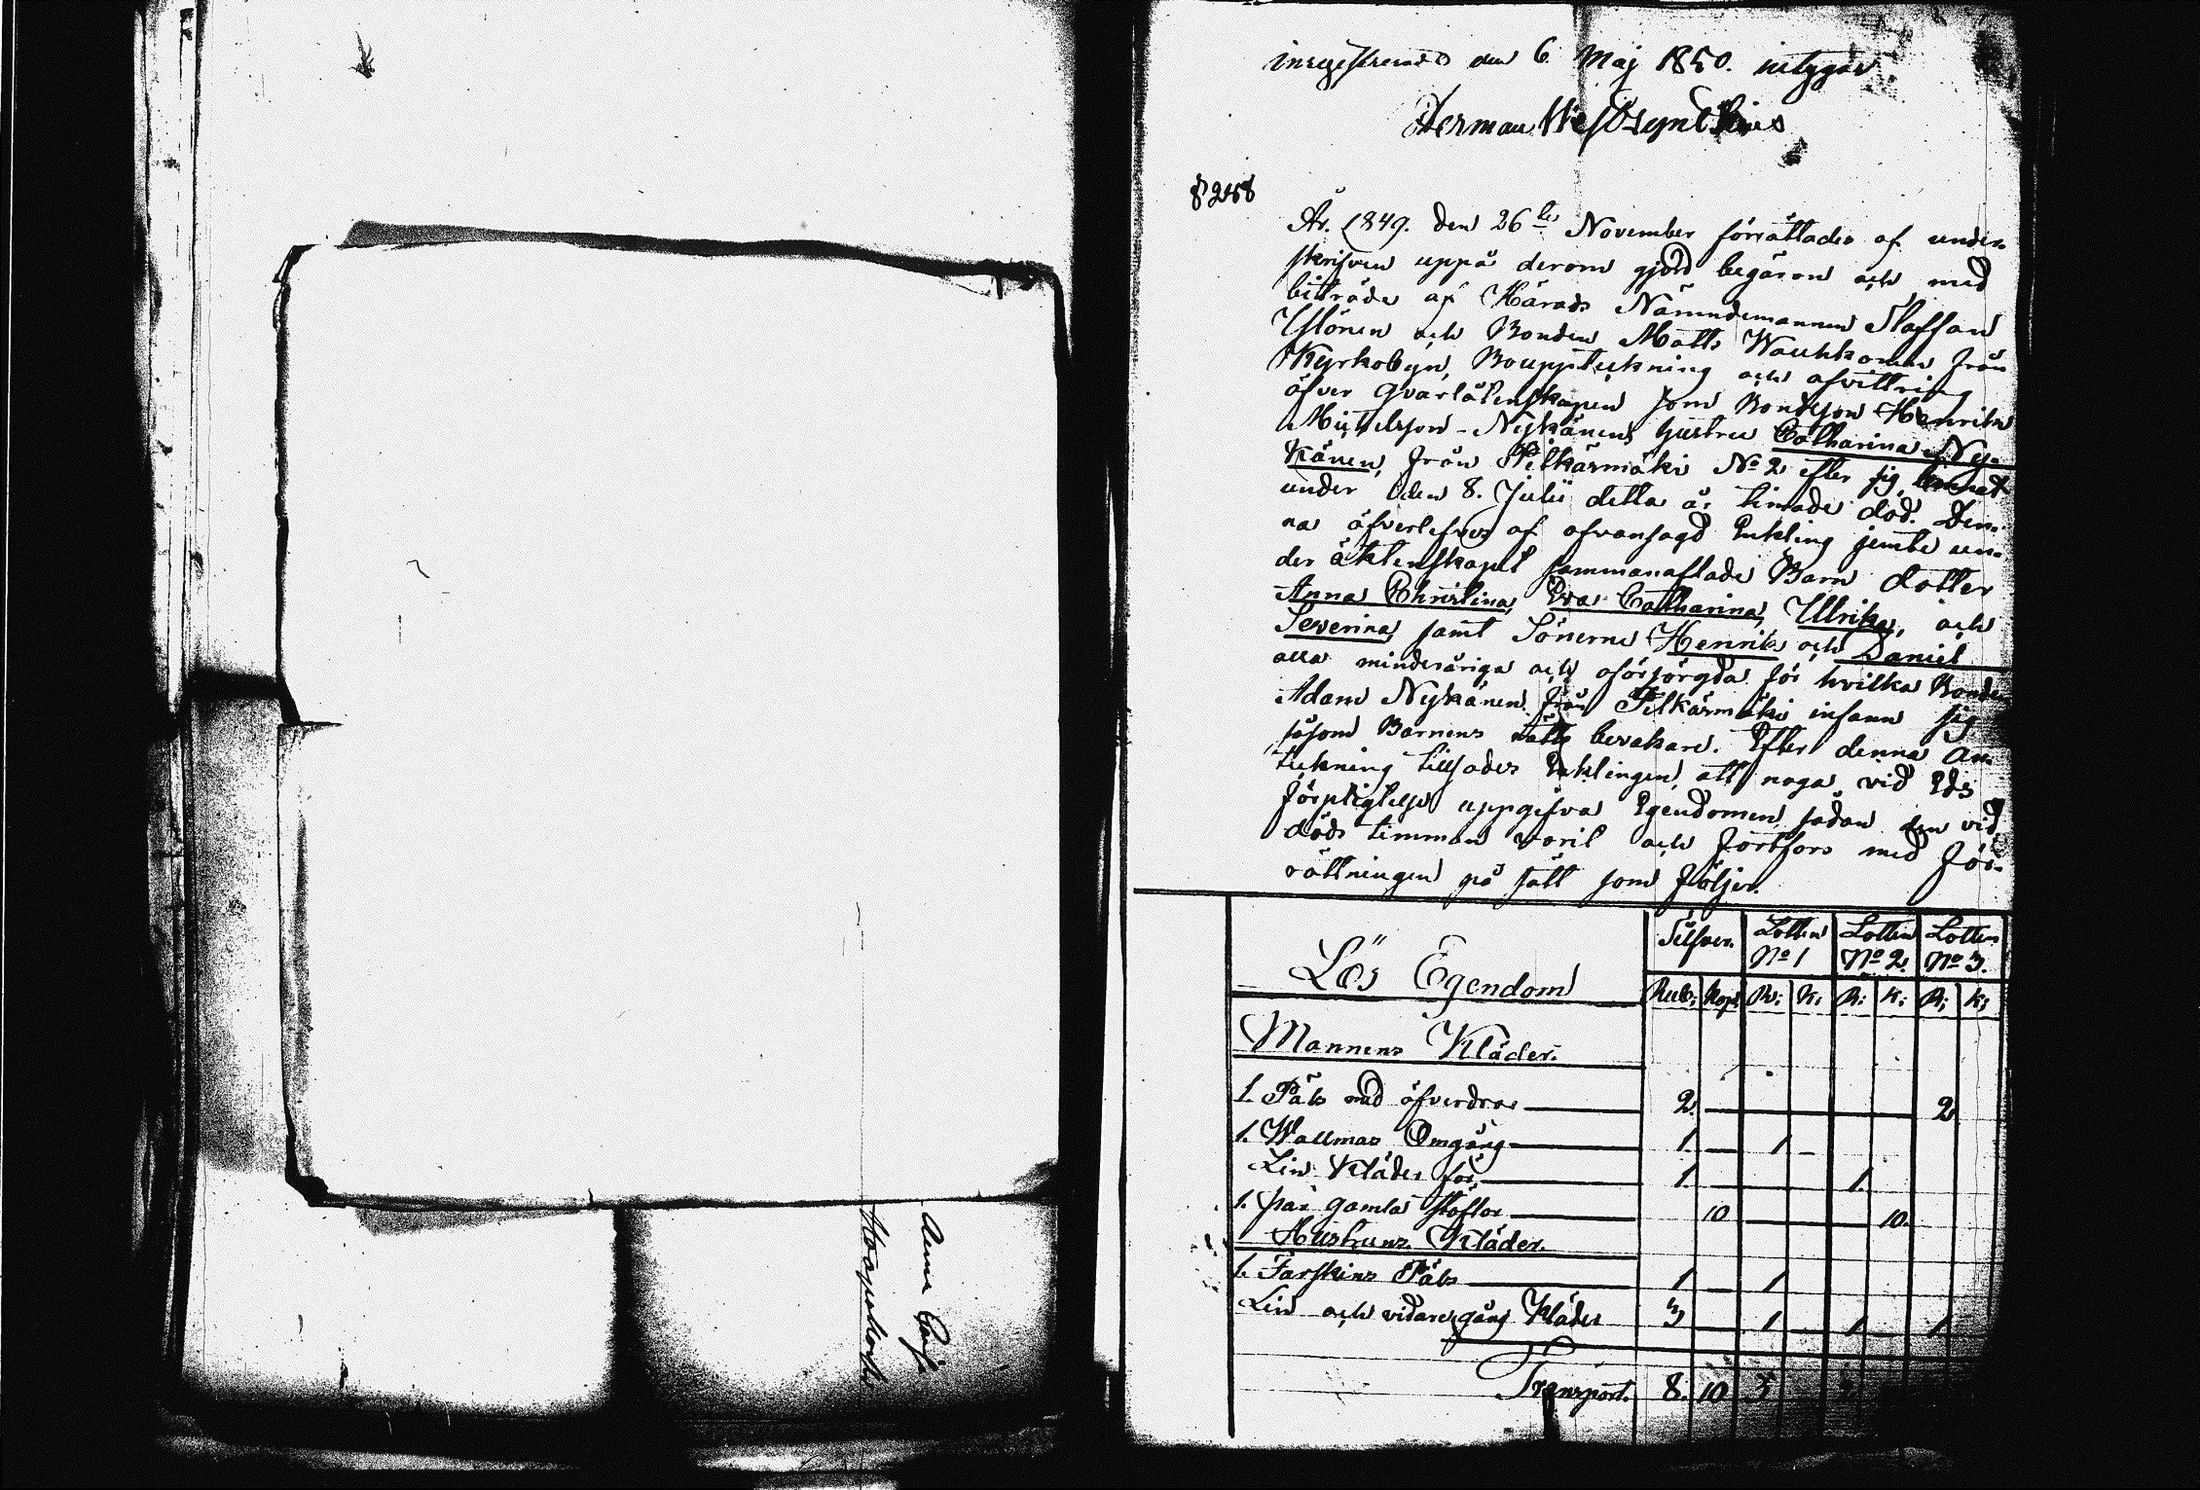 inregistrerad den 6 Maj 1850. intygar
Herman
§ 248
År. 1849. den 26te November förrättades af under-
skrifven uppå derom gjord begäran och med
biträde af Härads Nämndemannen Staffan
Ylönen och Bonden Matts Wauhkonen från
Kyrkobyn, Bouppteckning och afvittring
öfver qvarlåtenskapen som Bondeson Henrik
Michelsson Nykänens hustru Catharina Ny-
känen, från Pilkänmäki No 2 efter sig lemnat
under den 8. Julii detta år timade död. Den-
na öfverlefves af ofvansagd Enkling jemte un-
der äktenskapet sammanaflade Barn dotter
Anna Christina, Eva Catharina, Ullrika, och
Severina, samt Sönerne Henrik och Daniel
alla minderåriga och oförsörgda för hvilka Bonden
Adam Nykänen från Pilkänmäki infann sig
såsom Barnens rätts bevakare. Efter denna An-
teckning tillsades Enklingen, att noga vid Eds
förpligtelse uppgifva Egendomen sådan den vid
döds timman varit och fortfors med för-
rättningen på sätt som följer.
Lös Egendom
Silfver. Lotten No 1 Lotten No 2. Lotten No 3.
Rub: Kop: R: K: R: K: R: K:
Mannens Kläder.
1. Päls med öfverdrag 2. 2
1. Wallmas Omgång 1. 1
Lin Kläder för 1. 1.
1. par gamla stöflor 10 10.
Hustruns Kläder.
1. Fårskins Päls 1 1
Lin och vidare gång Kläder 3 1 1 1
Transport. 8. 10 3
Anna